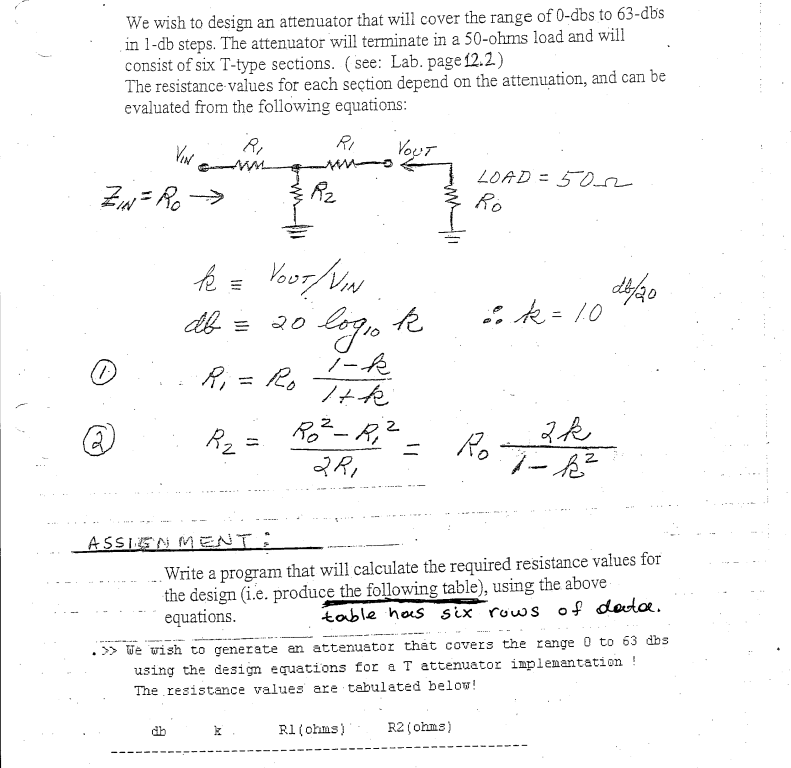 We wish to design an attenuator that will cover the range of 0-dbs to 63-dbs
in 1-db steps. The attenuator will terminate in a 50-ohms load and will
consist of six T-type sections. ( see: Lab. page 12.2)
The resistance values for each section depend on the attenuation, and can be
evaluated from the following equations:
VIN R1 R1 VOUT
LOAD = 50Ω
ZIN = R0 → R2 R0
k ≡ VOUT/VIN
db ≡ 20 log10 k ∴ k = 10^(db/20)
① R1 = R0 (1-k)/(1+k)
② R2 = (R0² - R1²)/(2R1) = R0 2k/(1-k²)
ASSIGNMENT:
Write a program that will calculate the required resistance values for
the design (i.e. produce the following table), using the above
equations. table has six rows of data.
.>> We wish to generate an attenuator that covers the range 0 to 63 dbs
using the design equations for a T attenuator implemantation !
The resistance values are tabulated below!
db k R1(ohms) R2(ohms)